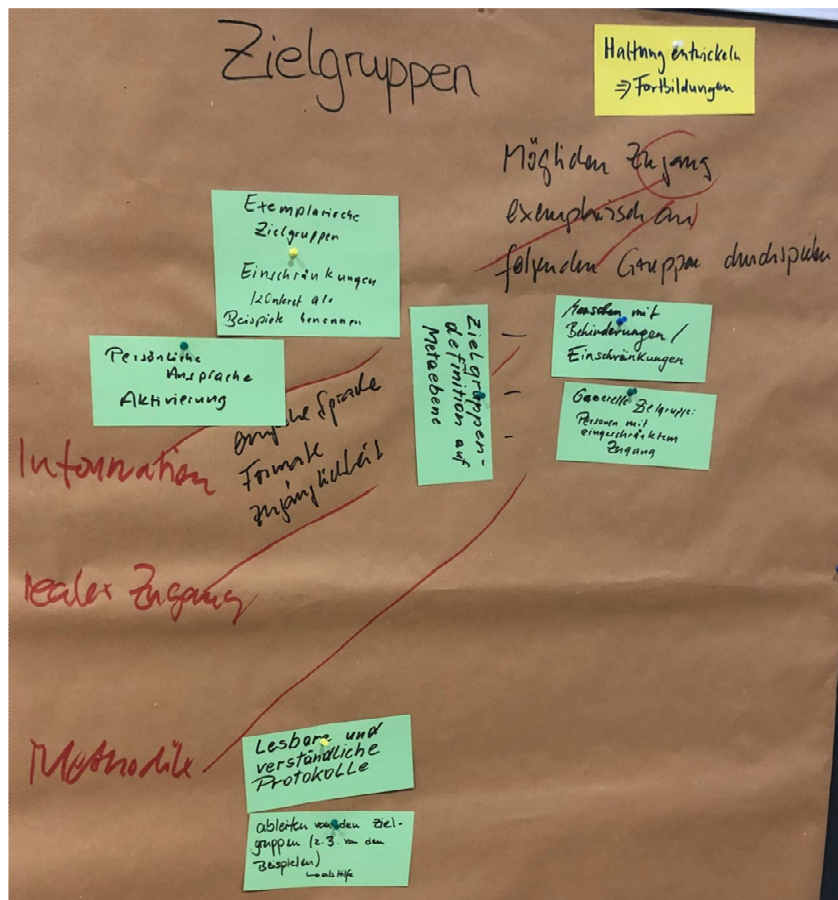 Zielgruppen
Haltung entwickeln
⇒ Fortbildungen
Möglichen Zugang
exemplarisch an
folgenden Gruppen durchspielen
Exemplarische
Zielgruppen
Einschränkungen
konkret als
Beispiele benennen
Persönliche
Ansprache
Aktivierung
Zielgruppen-
definition auf
Metaebene
– Menschen mit
Behinderungen /
Einschränkungen
– Generelle Zielgruppe:
– Personen mit
eingeschränktem
Zugang
Information
einfache Sprache
Formate
Zugänglichkeit
realer Zugang
Methodik
Lesbare und
verständliche
Protokolle
ableiten von den Ziel-
gruppen (z.B. von den
Beispielen)